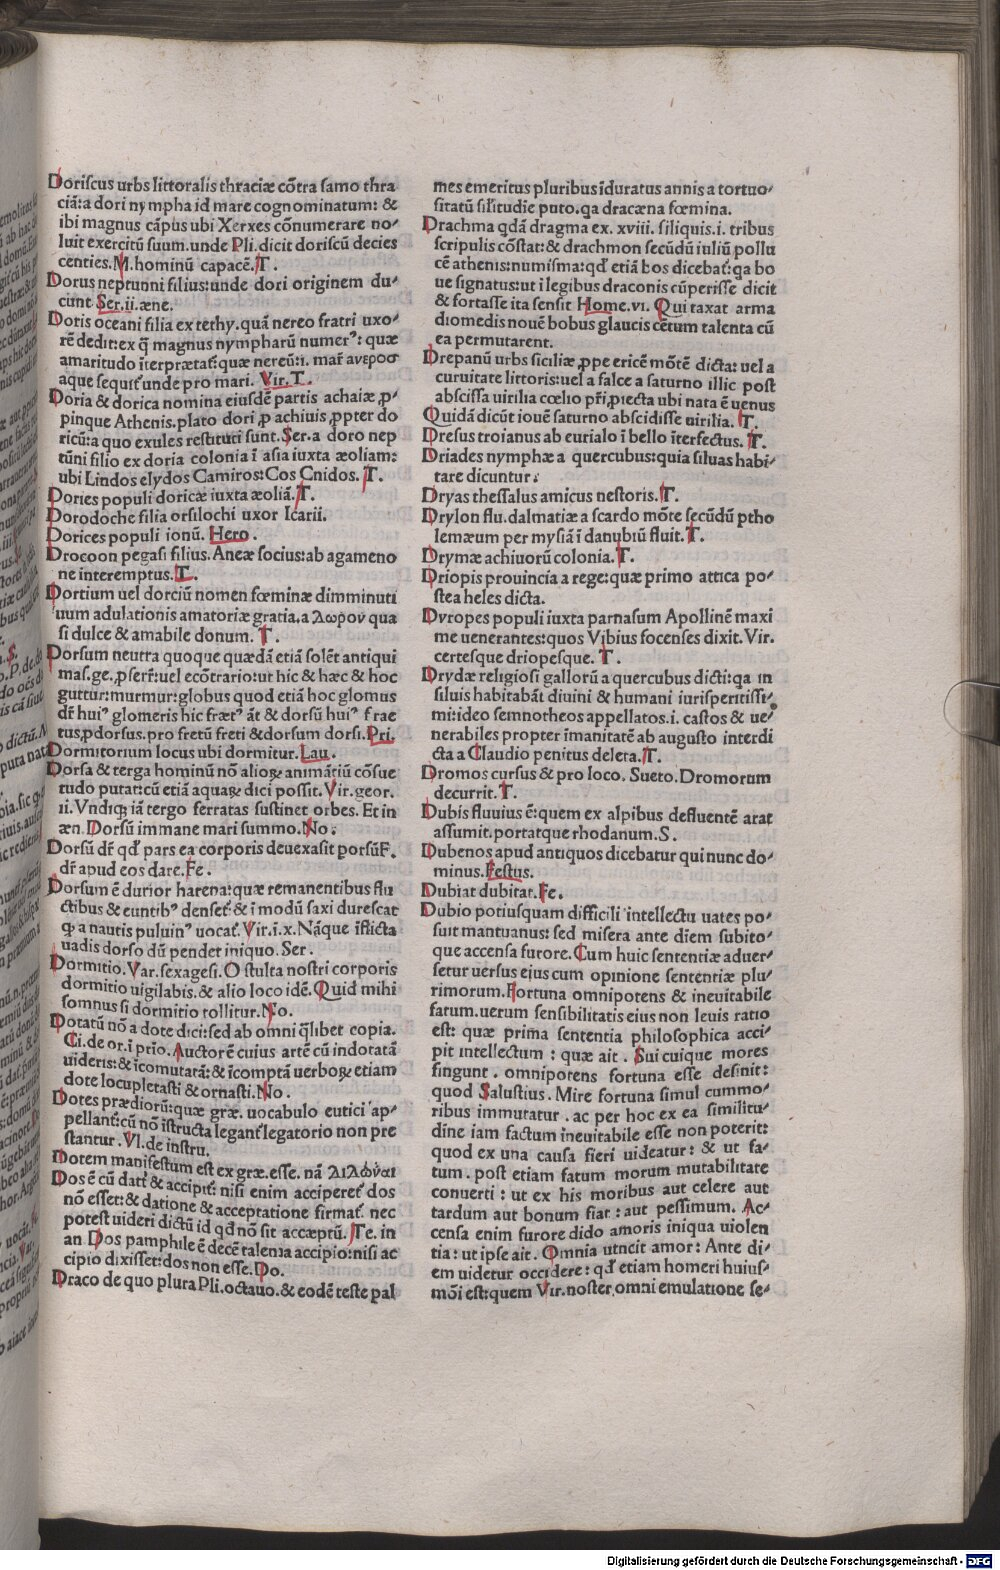 Doriſcus urbs littoralis thraciæ cõtra ſamo thra
ciã:a dori nympha id mare cognominatum: &
ibi magnus cãpus ubi Xerxes cõnumerare no⸗
luit exercitũ ſuum.unde Pli.dicit doriſcũ decies
centies.M.hominũ capacẽ.T.
Dorus neptunni filius:unde dori originem du⸗
cunt Ser.ii.æne.
Dotis oceani filia ex tethy.quã nereo fratri uxo⸗
rẽ dedit:ex q̃ magnus nympharũ numerꝰ: quæ
amaritudo ĩterprætat᷑:quæ nereũ:i. mar̃ ανεροσ
aque ſequit᷑ unde pro mari. Vir.T.
Doria & dorica nomina eiuſdẽ partis achaiæ ꝓ⸗
pinque Athenis.plato dori ꝓ achiuis ꝓpter do
ricũ:a quo exules reſtituti ſunt.Ser.a doro nep
tũni filio ex doria colonia ĩ aſia iuxta æoliam:
ubi Lindos elydos Camiros:Cos Cnidos. T.
Dories populi doricæ iuxta æoliã.T.
Dorodoche filia orſilochi uxor Icarii.
Dorices populi ionũ. Hero.
Drocoon pegaſi filius.Aneæ ſocius:ab agameno
ne interemptus.T.
Dortium uel dorciũ nomen fœminæ dimminuti
uum adulationis amatoriæ gratia.a λωρον qua
ſi dulce & amabile donum. T.
Dorſum neutra quoque quædã etiã ſolẽt antiqui
maſ.ge.ꝓferr̃:uel ecõtrario:ut hic & hæc & hoc
guttur:murmur:globus quod etiã hoc glomus
dr̃ huiꝰ glomeris hic frætꝰ ãt & dorſũ huiꝰ frae
tus,ꝓdorſus.pro fretũ freti & dorſum dorſi.Pri.
Dormitorium locus ubi dormitur. Lau.
Dorſa & terga hominũ nõ alioꝝ animãtiũ cõſue
tudo putat:cũ etiã aquaꝝ dici poſſit.Vir.geor.
ii.Vndiqꝫ iã tergo ferratas ſuſtinet orbes. Et in
æn. Dorſũ immane mari ſummo.No.
Dorſũ dr̃ qđ pars ea corporis deuexaſit ꝓorſũF.
dr̃ apud eos dare.Fe.
Dorſum ẽ durior harena:quæ remanentibus flu
ctibus & euntibꝰ denſet᷑:& ĩ modũ ſaxi dureſcat
qꝫ a nautis puluinꝰ uocat᷑.Vir.i.x.Nãque ĩflicta
uadis dorſo dũ pendet iniquo. Ser.
Dormitio.Var.ſexageſi.O ſtulta noſtri corporis
dormitio uigilabis.& alio loco idẽ. Quid mihi
ſomnus ſi dormitio tollitur.No.
Dotatũ nõ a dote dici:ſed ab omni q̃libet copia.
Ci.de or.ĩ prio. Auctorẽ cuius artẽ cũ indotatã
uideris:& ĩcomutatã:& ĩcomptã uerboꝝ etiam
dote locupletaſti & ornaſti.No.
Dotes prædiorũ:quæ græ. uocabulo eutici ap⸗
pellant᷑:cũ nõ iſtructa legant᷑ legatorio non pre
ſtantur.Vl.de inſtru.
Dotem manifeſtum eſt ex græ.eſſe. nã λιλώναι
Dos ẽ cũ dat᷑ & accipit᷑: niſi enim acciperet᷑ dos
nõ eſſet:& datione & acceptatione firmat᷑. nec
poteſt uideri dictũ id qđ nõ ſit accæptũ. Te.in
an. Dos pamphile ẽ decẽ talenta accipio:niſi ac
cipio dixiſſet:dos non eſſe.Do.
Draco de quo plura Pli.octauo.& eodẽ teſte pal
mes emeritus pluribus iduratus annis a tortuo⸗
ſitatũ ſil̃itudĩe puto.qa dracæna fœmina.
Drachma qdã dragma ex. xviii. ſiliquis.i. tribus
ſcripulis cõſtat:& drachmon ſecũdũ iuliũ pollu
cẽ athenis:numiſma:qđ etiã bos dicebat᷑:qa bo
ue ſignatus:ut ĩ legibus draconis cũperiſſe dicit
& fortaſſe ita ſenſit Home.vi. Qui taxat arma
diomedis nouẽ bobus glaucis cẽtum talenta cũ
ea permutarent.
Drepanũ urbs ſiciliæ ꝓpe ericẽ mõtẽ dicta: uel a
curuitate littoris:uel a falce a ſaturno illic poſt
abſciſſa uirilia cœlio pr̃i ꝓiecta ubi nata ẽ uenus
Quidã dicũt iouẽ ſaturno abſcidiſſe uirilia. T.
Dreſus troianus ab eurialo ĩ bello ĩterfectus. T.
Driades nymphæ a quercubus:quia ſiluas habi⸗
tare dicuntur:
Dryas theſſalus amicus neſtoris.T.
Drylon flu.dalmatiæ a ſcardo mõte ſecũdũ ptho
lemæum per myſiã ĩ danubiũ fluit.T.
Drymæ achiuorũ colonia.T.
Driopis prouincia a rege:quæ primo attica po⸗
ſtea heles dicta.
Dvropes populi iuxta parnaſum Apollinẽ maxi
me uenerantes:quos Vibius focenſes dixit. Vir.
certeſque driopeſque. T.
Drydæ religioſi gallorũ a quercubus dicti:qa in
ſiluis habitabãt diuini & humani iuriſperitiſſi⸗
mi:ideo ſemnotheos appellatos.i. caſtos & ue⸗
nerabiles propter ĩmanitatẽ ab auguſto interdi
cta a Claudio penitus deleta.T.
Dromos curſus & pro loco. Sueto. Dromorum
decurrit.T.
Dubis fluuius ẽ:quem ex alpibus defluentẽ arat
aſſumit.portatque rhodanum.S.
Dubenos apud antiquos dicebatur qui nunc do⸗
minus.Feſtus.
Dubiat dubitat.Fe.
Dubio potiuſquam difficili intellectu uates po⸗
ſuit mantuanus: ſed miſera ante diem ſubito⸗
que accenſa furore. Cum huic ſententiæ aduer⸗
ſetur uerſus eius cum opinione ſententiæ plu⸗
rimorum.Fortuna omnipotens & ineuitabile
fatum.uerum ſenſibilitatis eius non leuis ratio
eſt: quæ prima ſententia philoſophica acci⸗
pit intellectum : quæ ait. Sui cuique mores
fingunt. omnipotens fortuna eſſe definit:
quod Saluſtius. Mire fortuna ſimul cummo⸗
ribus immutatur. ac per hoc ex ea ſimilitu⸗
dine iam factum ineuitabile eſſe non poterit:
quod ex una cauſa fieri uideatur: & ut fa⸗
tum. poſt etiam fatum morum mutabilitate
conuerti : ut ex his moribus aut celere aut
tardum aut bonum fiat : aut peſſimum. Ac⸗
cenſa enim furore dido amoris iniqua uiolen
tia: ut ipſe ait. Omnia utncit amor: Ante di⸗
em uidetur occidere: qđ etiam homeri huiuſ⸗
mõi eſt:quem Vir.noſter,omni emulatione ſe⸗
Digitalisierung gefördert durch die Deutsche Forschungsgemeinschaft - DFG